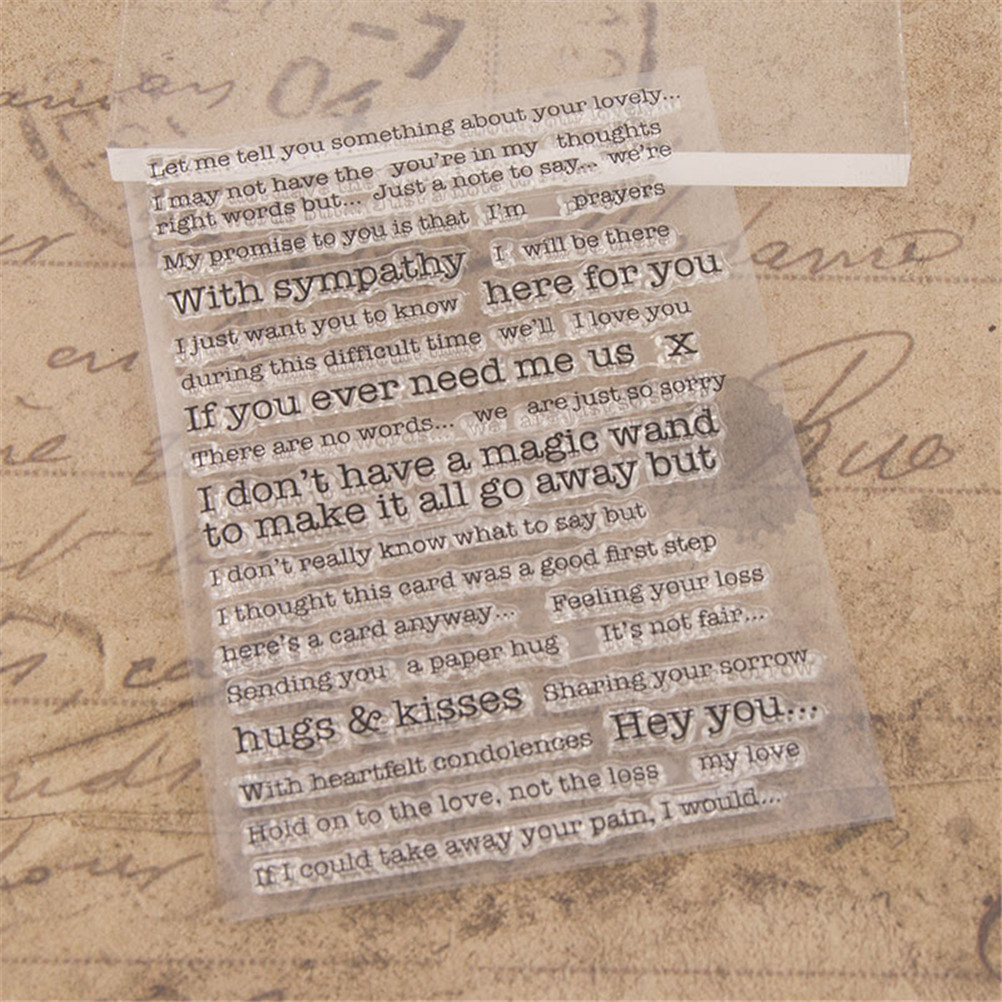 Let me tell you something about your lovely...
I may not have the you're in my thoughts
right words but... Just a note to say... we're
My promise to you is that I'm prayers
With sympathy I will be there
here for you
I just want you to know
during this difficult time we'll I love you
If you ever need me us x
There are no words... we are just so sorry
I don't have a magic wand
to make it all go away but
I don't really know what to say but
I thought this card was a good first step
here's a card anyway... Feeling your loss
Sending you a paper hug It's not fair...
hugs & kisses Sharing your sorrow
With heartfelt condolences Hey you...
Hold on to the love, not the loss my love
If I could take away your pain, I would...